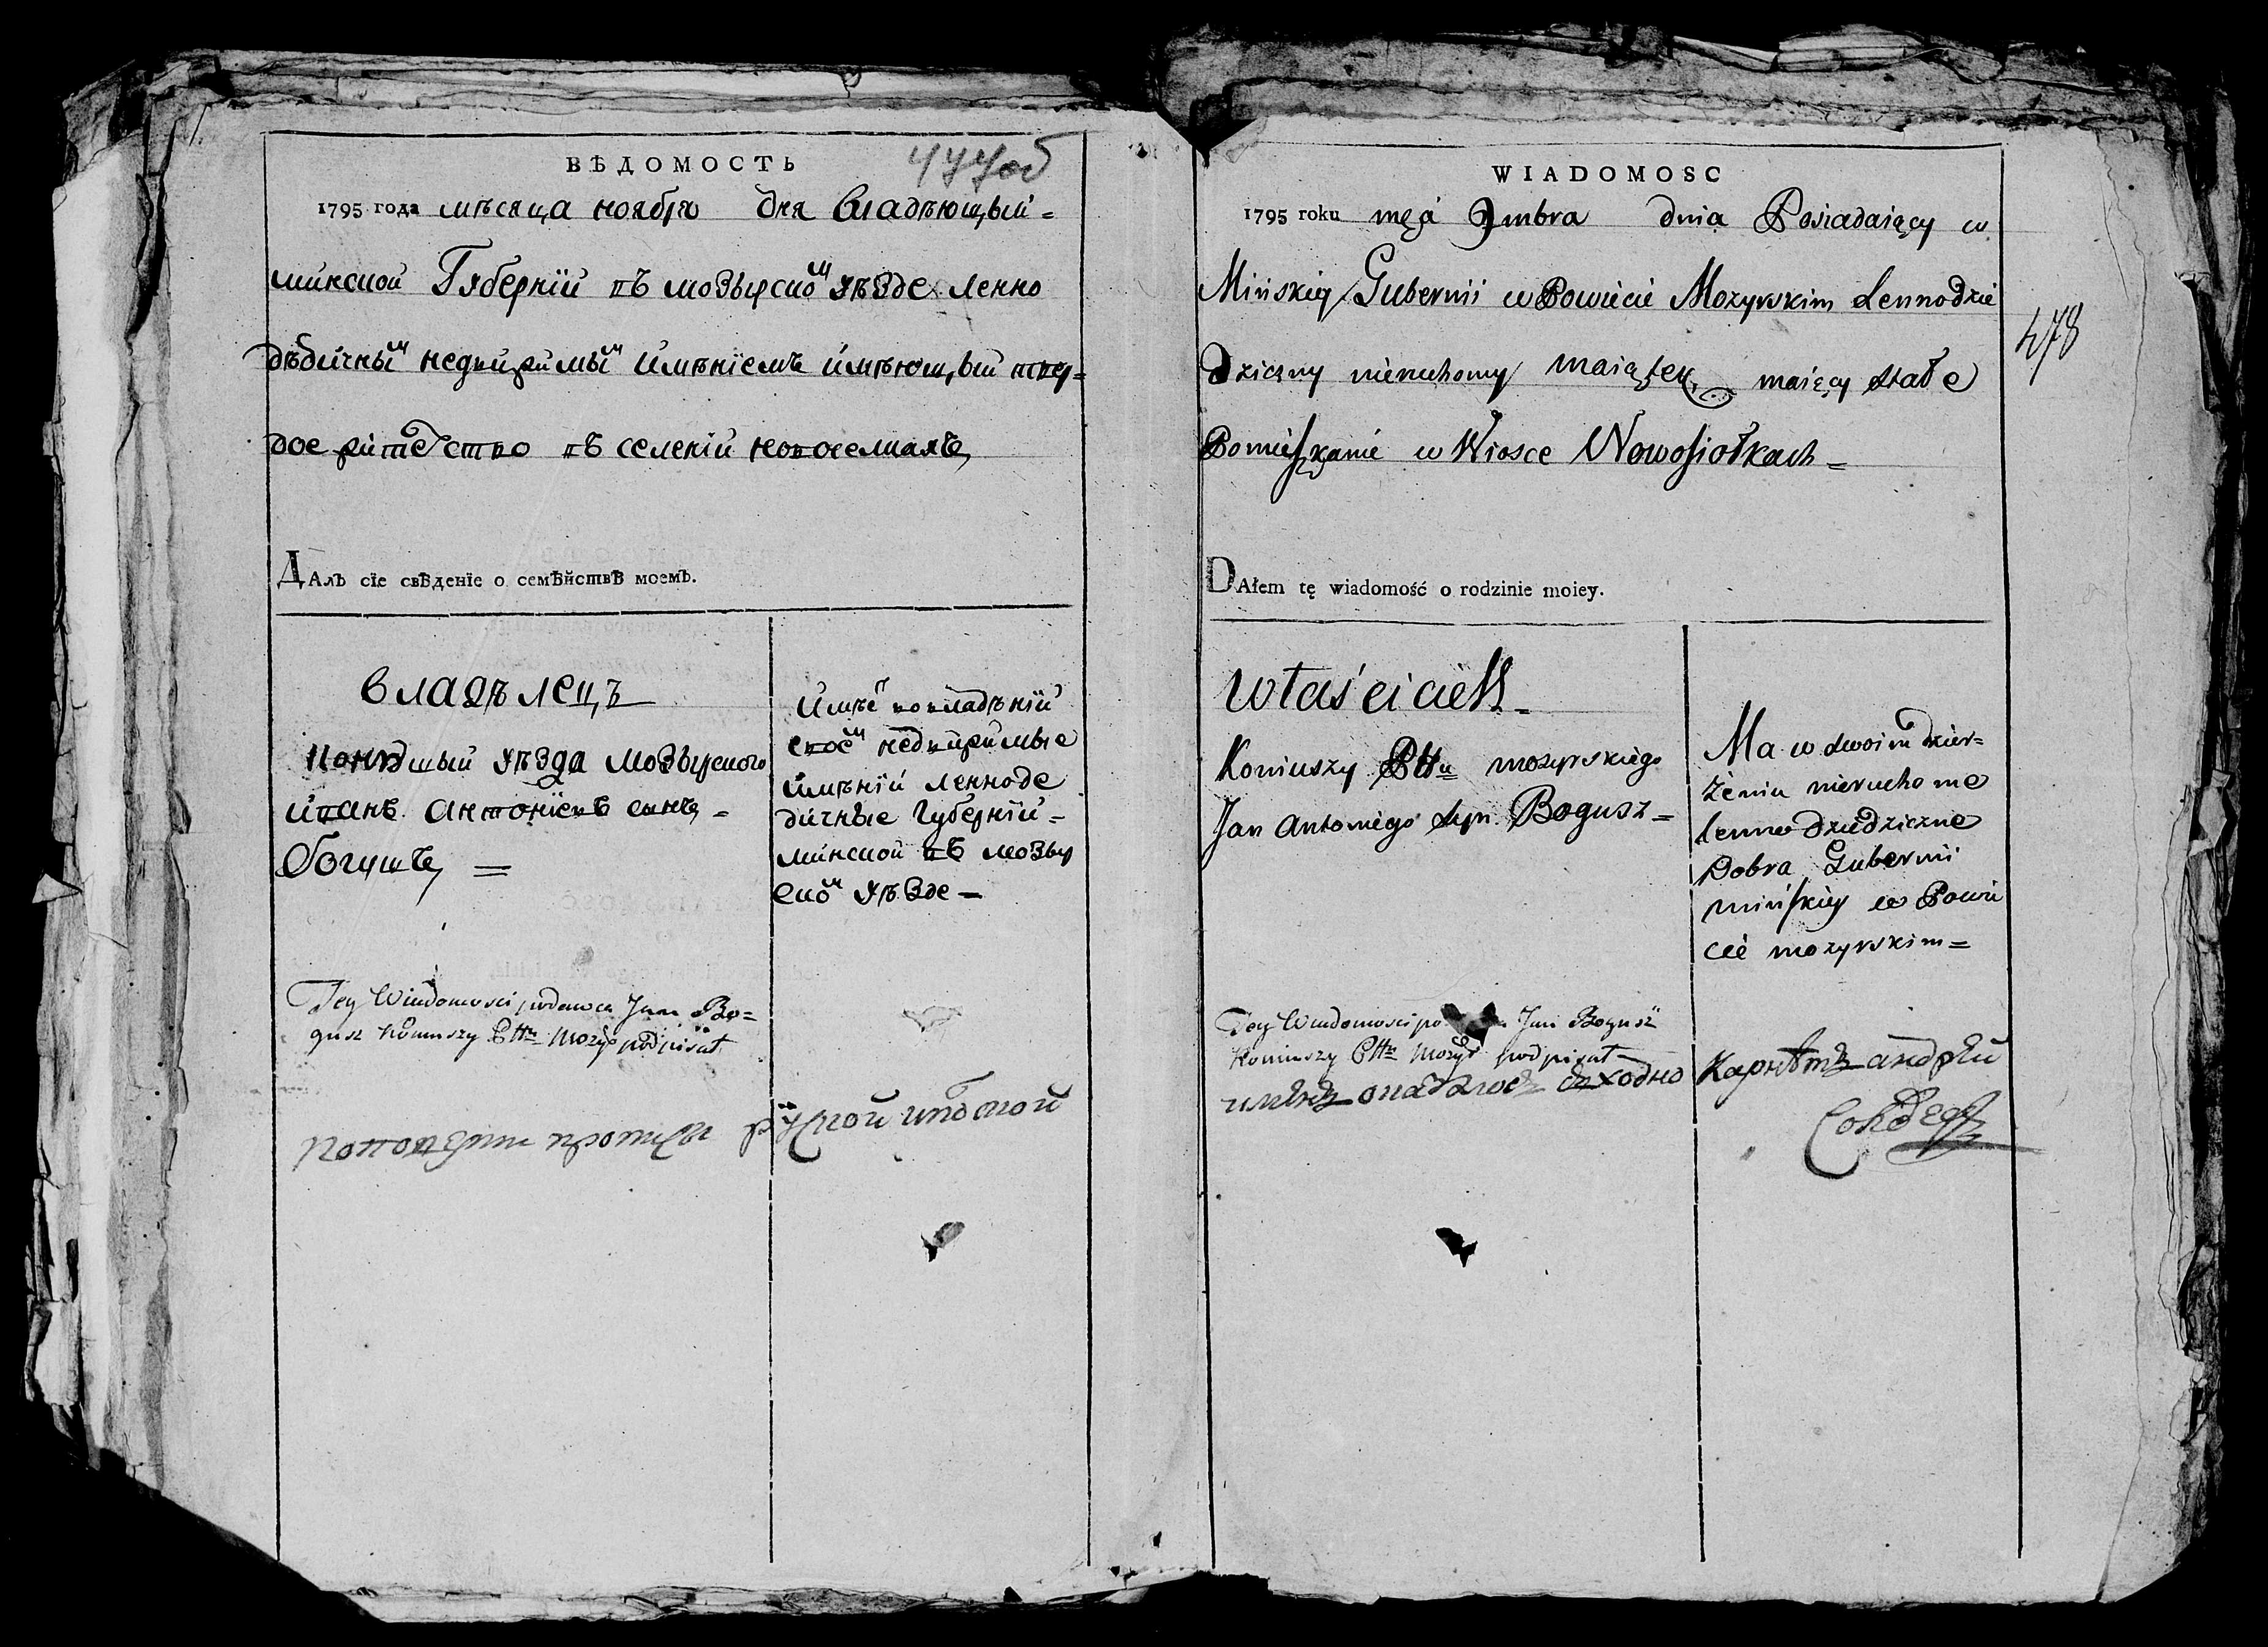 ВѢДОМОСТЬ
477об
1795 года мѣсяца ноября дня Владѣющый=
минской Губерніи въ мозырскомъ уѣзде Ленно
дѣдичнымъ недвижимымъ имѣніемъ имѣющый твер=
дое жительство въ селеніи новоселкахъ
ДАлъ сіе свѣденіе о семѣйствѣ моемъ.
владѣлецъ
Конюшый уѣзда Мозырского
иванъ антоніевъ сынъ =
богушъ =
имѣетъ во владѣніи
своемъ недвижимые
имѣніи ленноде
дичные губерніи=
минской въ мозыр
скомъ уѣзде —
Tey Wiadomosci podawca Jan Bo=
gusz Koniuszy Pttu Mozyr podpisał
руской
WIADOMOSC
478
1795 roku mca 9mbra dnia Posiadaiący w
Minskiey Gubernii w Powiecie Mozyrskim Lennodzie
Dziczny nieruchomy maiątek, maięcy stałe
Pomieszkanie w Wiosce Nowosiołkach =
DAłem tę wiadomość o rodzinie moiey.
właściciel
Koniuszy Pttu mozyrskiego
Jan Antoniego syn Bogusz =
Ma w swoim dzier=
żeniu nieruchome
lenno dziedziczne
Dobra Gubernii
mińskiey w Powie
cie mozyrskim =
Tey Wiadomosci Jan Bogusz
Koniuszy Pttu Mozyr podpisał
сходно Карнетъ андрей